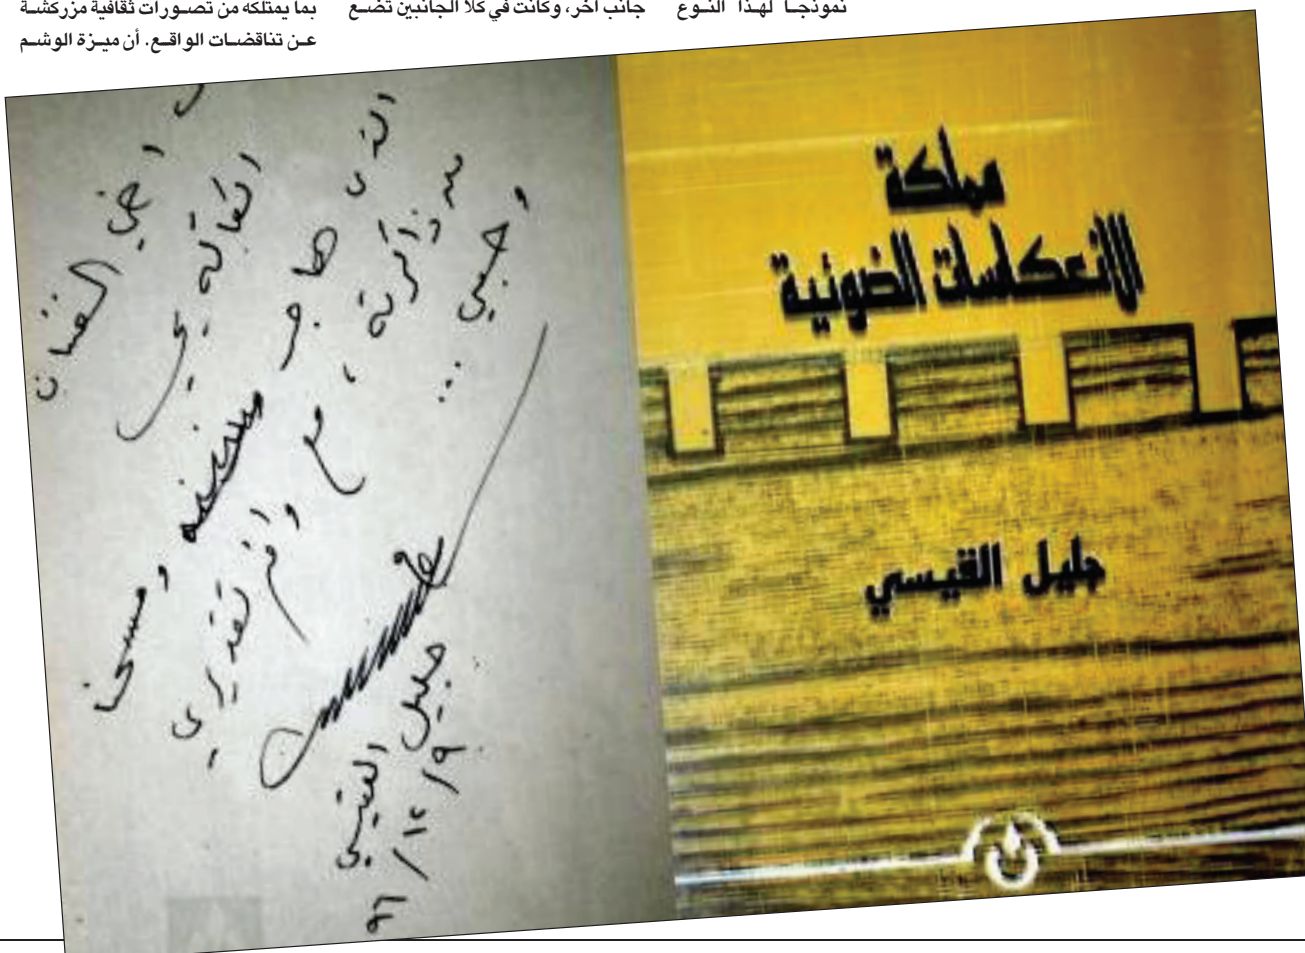 نموذجـا لهـذا النـوع
جانب آخر، وكانت في كلا الجانبين تضـع
بما يمتلكه من تصـورات ثقافية مزركشـة
عـن تناقضـات الواقـع. أن ميـزة الوشـم
مملكة
الانعكاسات الضوئية
جليل القيسي
اخي الفنان
الذي هاجر ومسحنا
من ذاكرته، مع وافر تقديري
وحبي ...
جليل القيسي
٩ / ١٢ / ٩٦